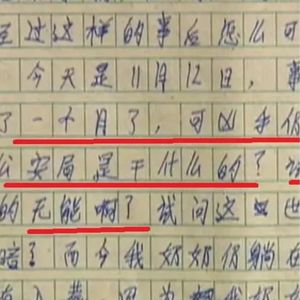 过这样的事后您么可
今天是11月12日，事
了一个月了，可凶手仍
公安局是干什么的？
的无能啊？试问这世
暗？而今我奶奶仍躺在